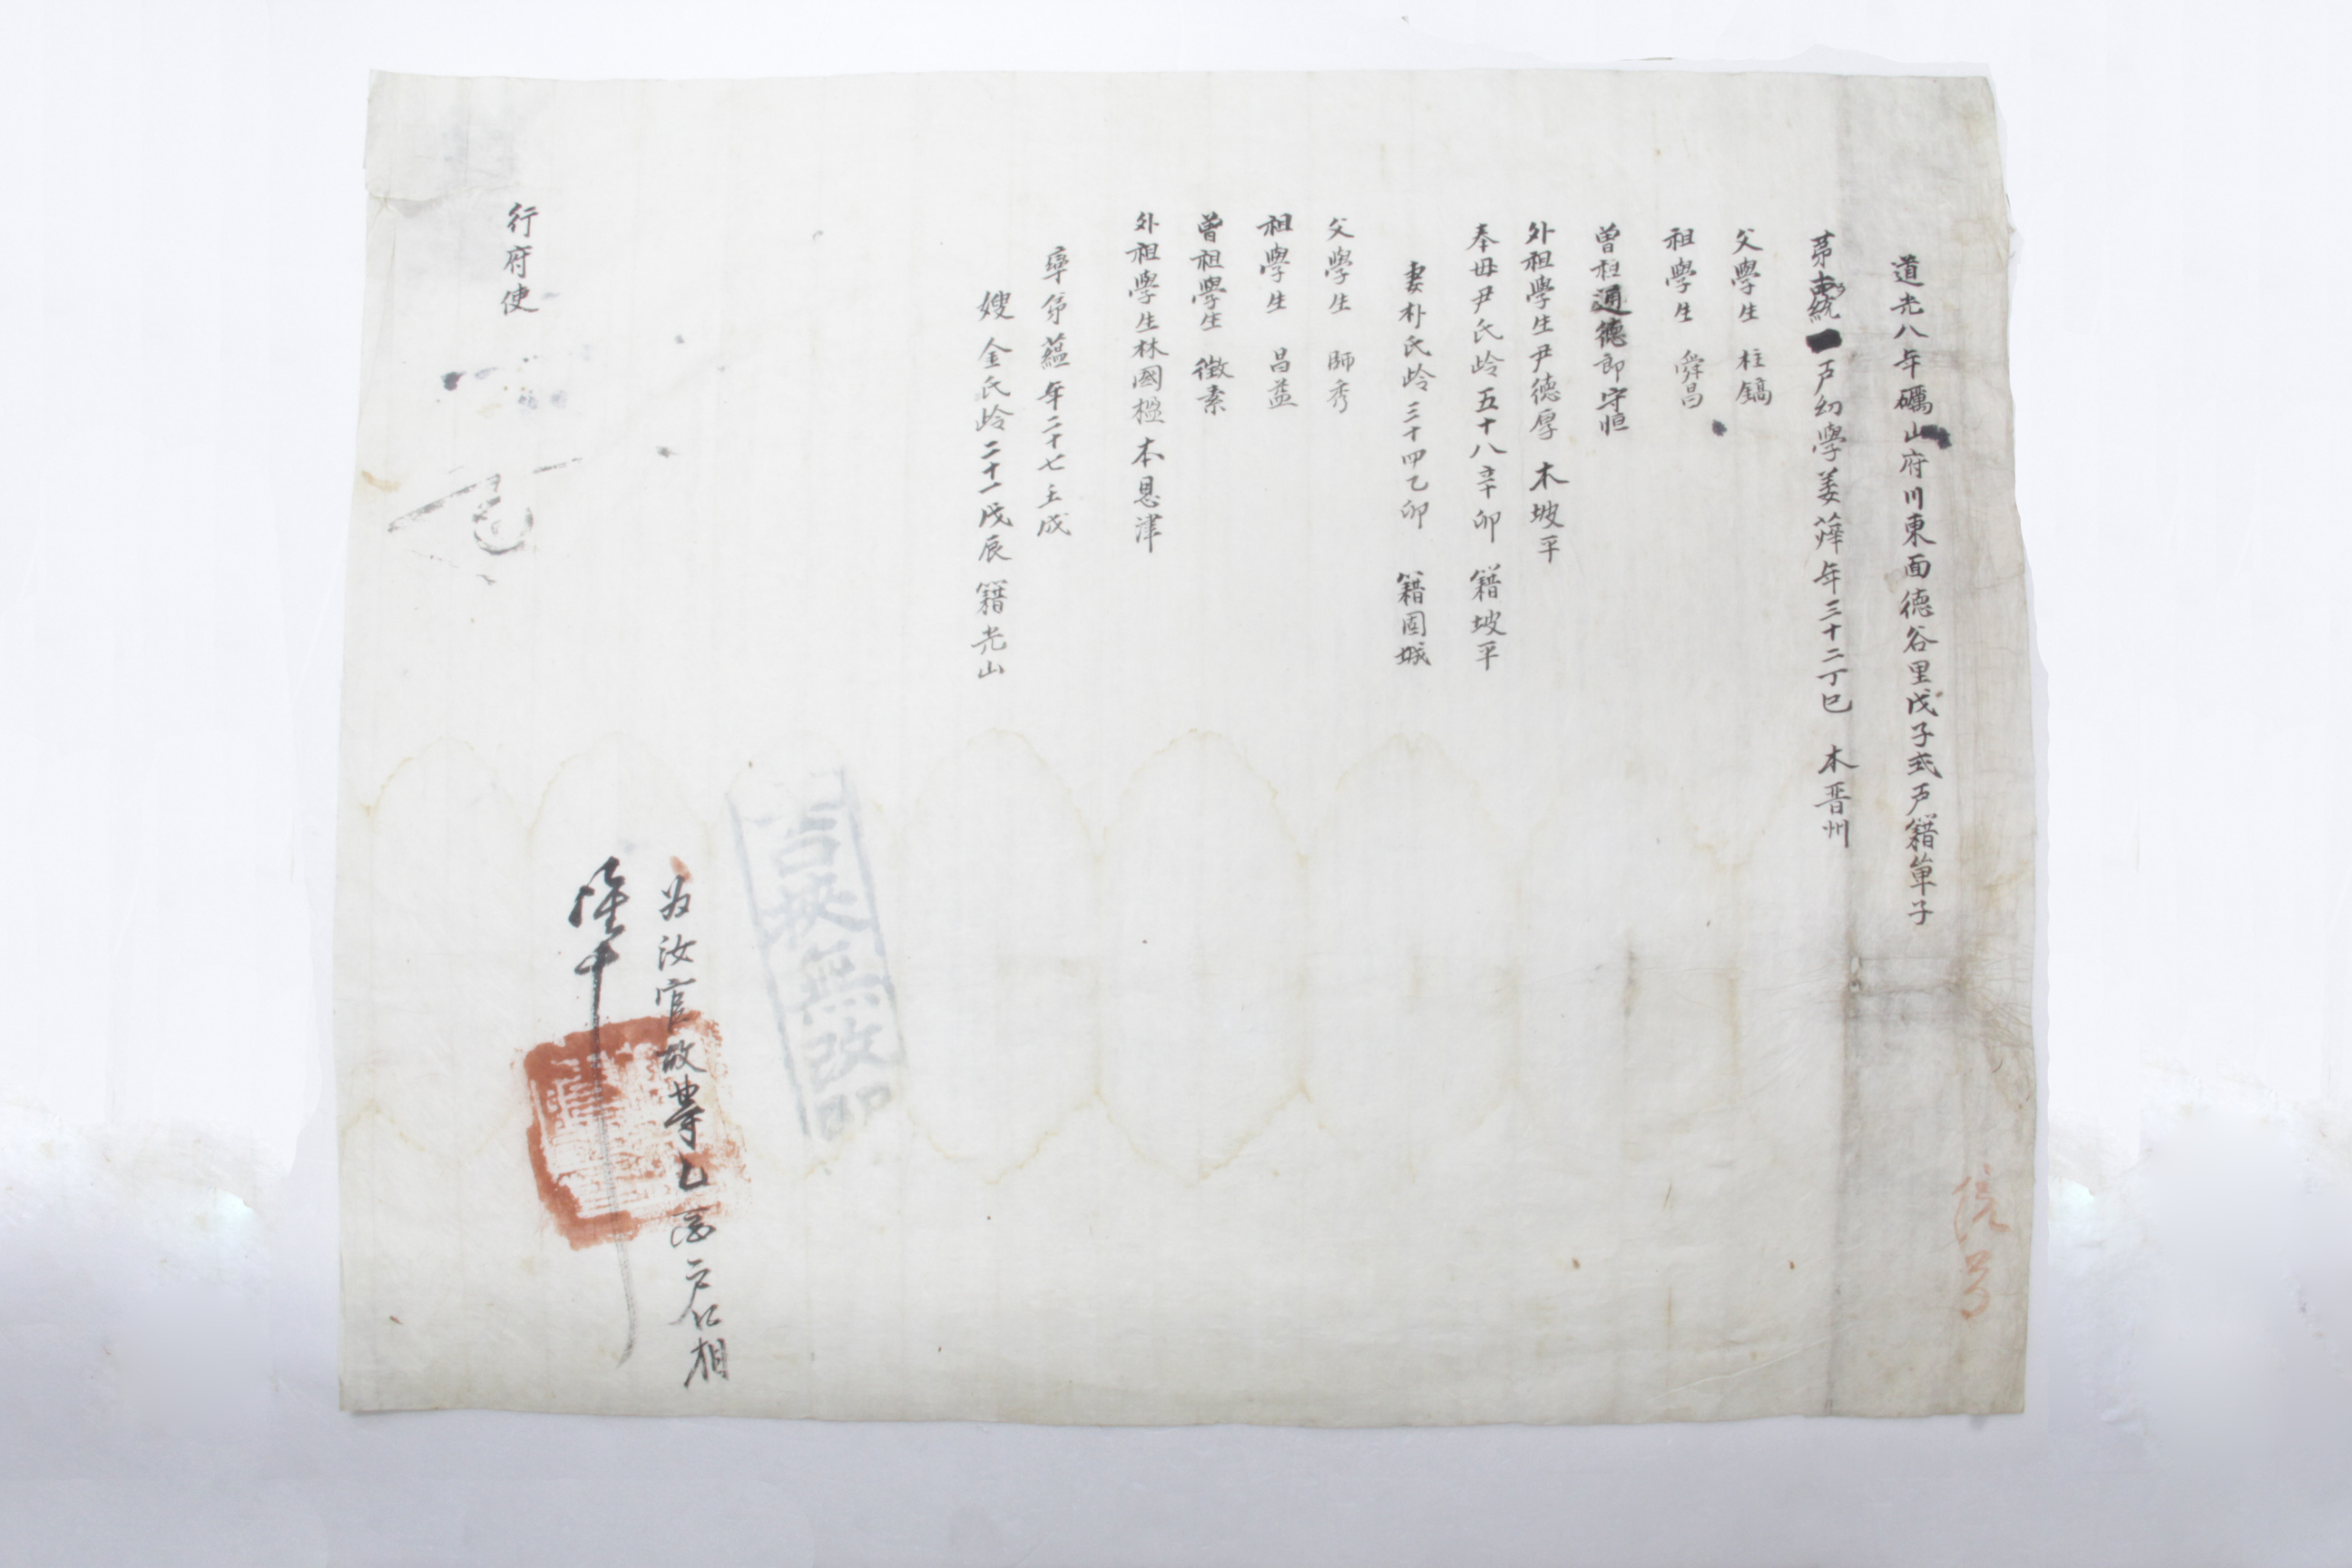 道光八年礪山府川東面德谷里戊子式戶籍單子
第統一戶幼學姜年三十二丁巳 本晋州
父學生 柱鎬
祖學生 舜昌
曾祖通德郎守恒
外祖學生尹德厚 本坡平
奉母尹氏岭五十八辛卯 籍坡平
妻朴氏岭三十四乙卯 籍固城
父學生 師秀
祖學生 昌益
曾祖學生 徵素
外祖學生林國楹本恩津
率弟蘊年二十七壬戌
嫂金氏岭二十一戊辰籍光山
無改印
為汝官故
戶仁相
行府使